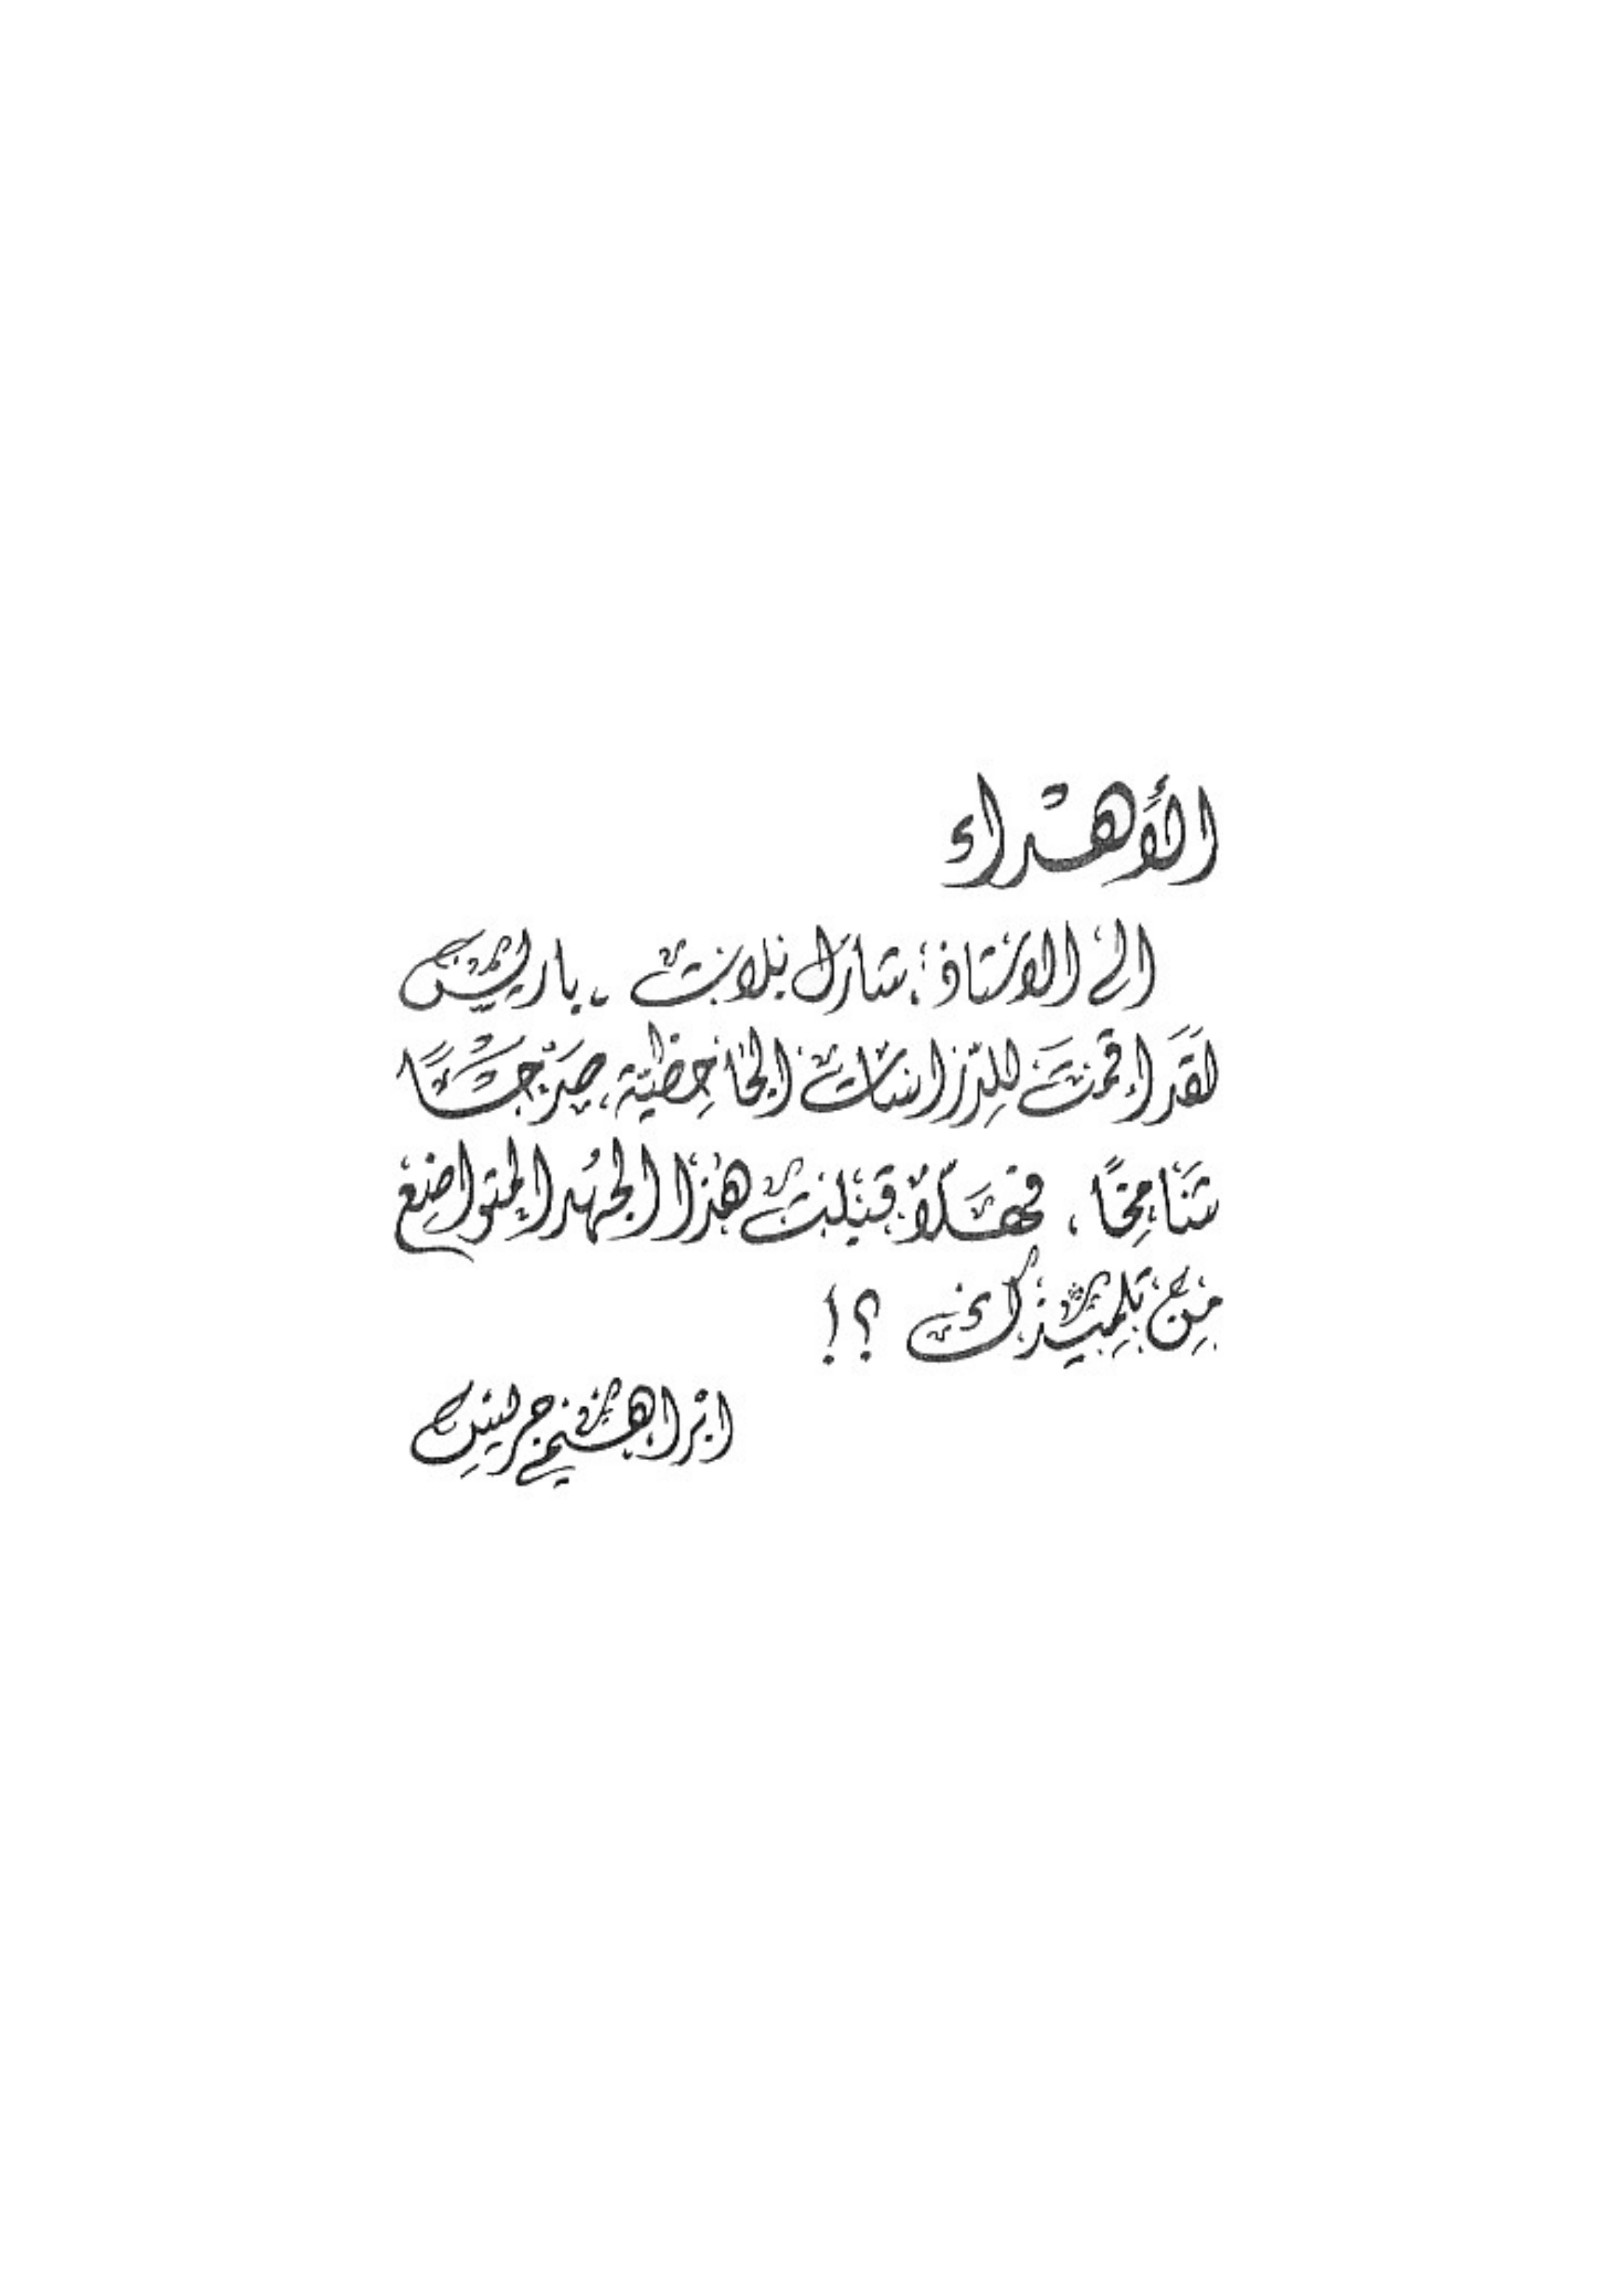 الأهْداء
الى الاستاذ: شارل بلات - باريس
لَقَد اقمتَ للدّراسات الجاحِظيّة صَرْحًا
شَامِخًا، فهَلاّ قبلت هٰذا الجُهد المتواضع
مِن تلميذك ؟!
ابراهيم جريس